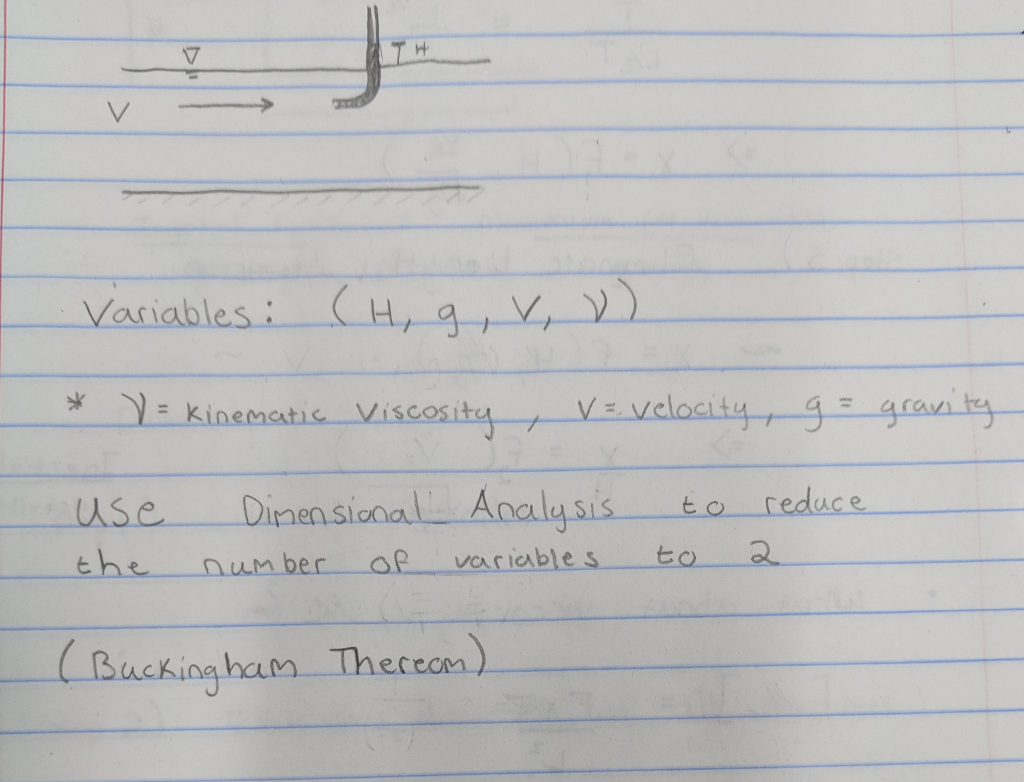 ▽
T H
V
Variables: (H, g, V, ν)
* ν = kinematic viscosity, V = velocity, g = gravity
USE Dimensional Analysis to reduce
the number of variables to 2
(Buckingham Thereom)